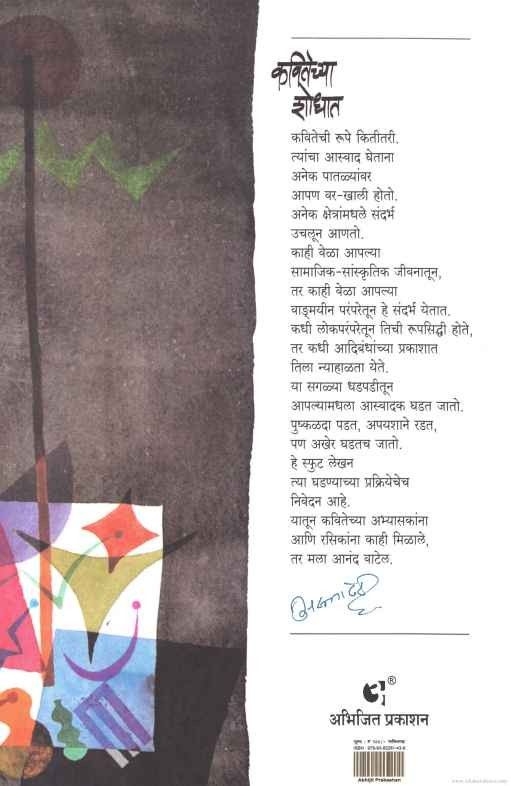 कवितेच्या
शोधात
कवितेची रूपे कितीतरी.
त्यांचा आस्वाद घेताना
अनेक पातळ्यांवर
आपण वर-खाली होतो.
अनेक क्षेत्रांमधले संदर्भ
उचलून आणतो.
काही वेळा आपल्या
सामाजिक-सांस्कृतिक जीवनातून,
तर काही वेळा आपल्या
वाङ्मयीन परंपरेतून हे संदर्भ येतात.
कधी लोकपरंपरेतून तिची रूपसिद्धी होते,
तर कधी आदिबंधांच्या प्रकाशात
तिला न्याहाळता येते.
या सगळ्या धडपडीतून
आपल्यामधला आस्वादक घडत जातो.
पुष्कळदा पडत, अपयशाने रडत,
पण अखेर घडतच जातो.
हे स्फुट लेखन
त्या घडण्याच्या प्रक्रियेचेच
निवेदन आहे.
यातून कवितेच्या अभ्यासकांना
आणि रसिकांना काही मिळाले,
तर मला आनंद वाटेल.
®
अभिजित प्रकाशन
Abhijit Prakashan